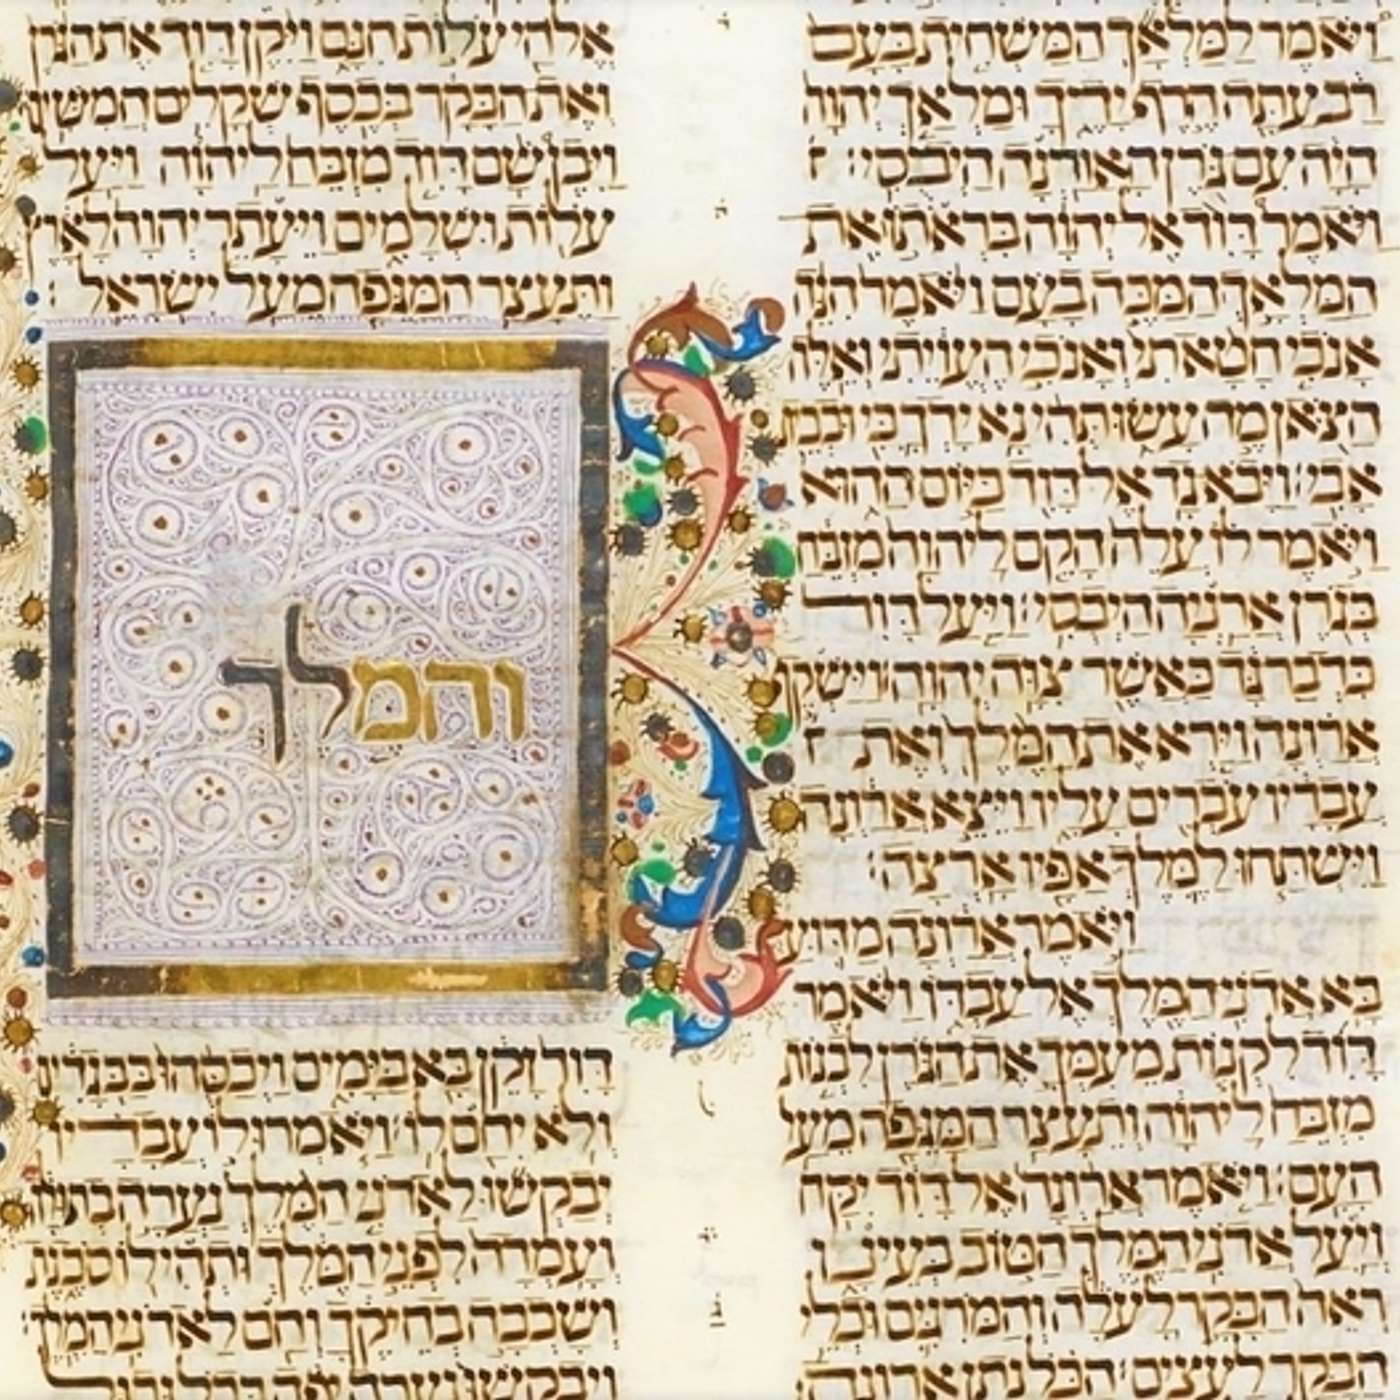 ויאמר למלאך המשחית בעם
רב עתה הרף ידך ומלאך יהוה
היה עם גרן האורנה היבסי׃
ויאמר דוד אל יהוה בראתו את
המלאך המכה בעם ויאמר הנה
אנכי חטאתי ואנכי העויתי ואלה
הצאן מה עשו תהי נא ידך בי ובבית
אבי׃ ויבא גד אל דוד ביום ההוא
ויאמר לו עלה הקם ליהוה מזבח
בגרן ארניה היבסי׃ ויעל דוד
כדבר גד כאשר צוה יהוה׃ וישקף
ארונה וירא את המלך ואת
עבדיו עברים עליו ויצא ארונה
וישתחו למלך אפיו ארצה׃
ויאמר ארונה מדוע
בא אדני המלך אל עבדו ויאמר
דוד לקנות מעמך את הגרן לבנות
מזבח ליהוה ותעצר המגפה מעל
העם׃ ויאמר ארונה אל דוד יקח
ויעל אדני המלך הטוב בעינו
ראה הבקר לעלה והמרגים וכלי
הבקר לעצים׃ הכל נתן ארונה
אלהי עלות חנם ויקן דוד את הגרן
ואת הבקר בכסף שקלים חמשים
ויבן שם דוד מזבח ליהוה ויעל
עלות ושלמים ויעתר יהוה לארץ
ותעצר המגפה מעל ישראל׃
והמלך
דוד זקן בא בימים ויכסהו בבגדים
ולא יחם לו׃ ויאמרו לו עבדיו
יבקשו לאדני המלך נערה בתולה
ועמדה לפני המלך ותהי לו סכנת
ושכבה בחיקך וחם לאדני המלך׃
ויבקשו נערה יפה בכל גבול